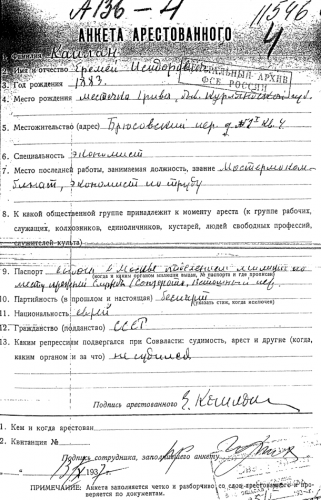 А136-4
11546
4
АНКЕТА АРЕСТОВАННОГО
1. Фамилия Каплан
2. Имя и отчество Еремей Исидорович
ЦЕНТРАЛЬНЫЙ АРХИВ
ФСБ РОССИИ
3. Год рождения 1883
4. Место рождения местечко Грива, быв. Курляндской губ.
5. Местожительство (адрес) Брюсовский пер. д. кв. 4
6. Специальность экономист
7. Место последней работы, занимаемая должность, звание
экономист по труду
8. К какой общественной группе принадлежит к моменту ареста (к группе рабочих,
служащих, колхозников, единоличников, кустарей, людей свободных профессий,
служителей культа)
9. Паспорт выдан в Москве отделением милиции по
(когда и каким органом милиции выдан, № паспорта и где прописан)
месту прежней службы
10. Партийность (в прошлом и настоящая) беспарт
(указать стаж, когда исключен)
11. Национальность еврей
12. Гражданство (подданство) СССР
13. Каким репрессиям подвергался при Соввласти: судимость, арест и другие (когда,
каким органом и за что) не судился
Подпись арестованного
1. Кем и когда арестован
2. Квитанция №
Подпись сотрудника, заполнявшего анкету
193 г.
ПРИМЕЧАНИЕ: Анкета заполняется четко и разборчиво со слов арестованного и про-
веряется по документам.